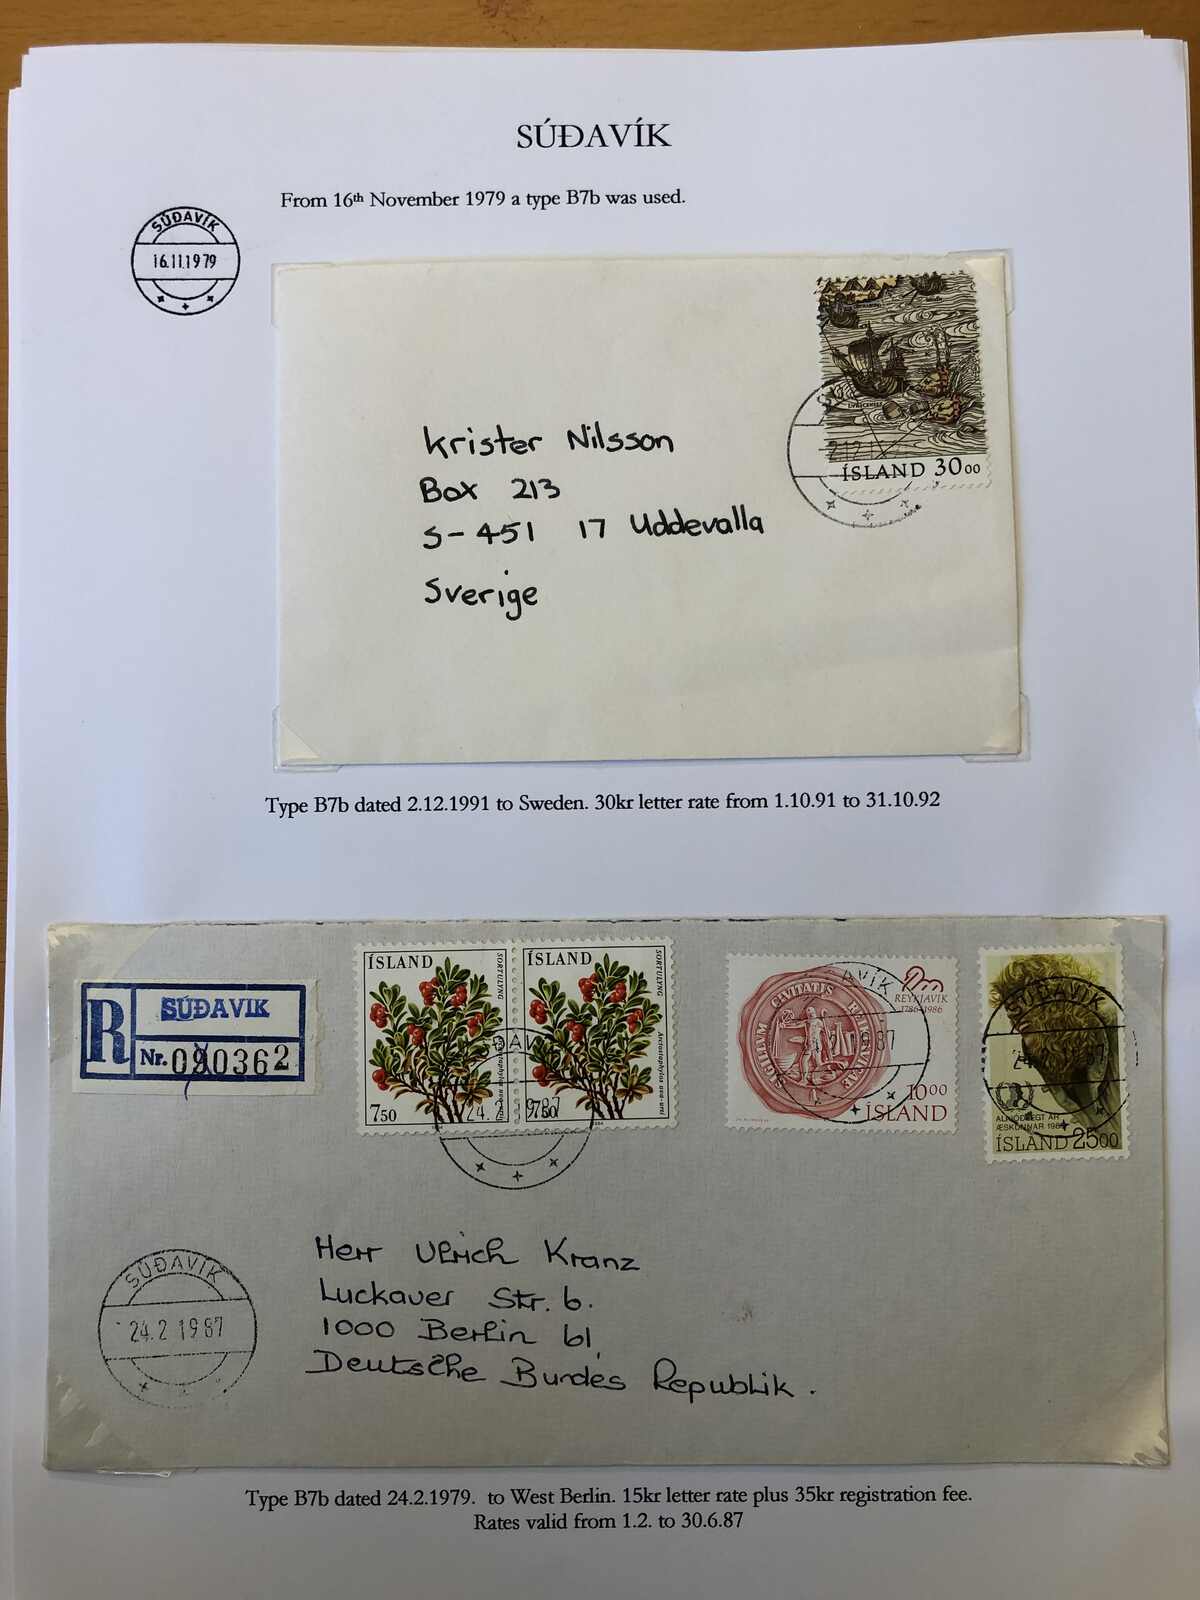 SÚÐAVÍK
From 16th November 1979 a type B7b was used.
SÚÐAVÍK
16.11.1979
ÍSLAND 3000
2.12.1
Krister Nilsson
Box 213
S-451 17 Uddevalla
Sverige
Type B7b dated 2.12.1991 to Sweden. 30kr letter rate from 1.10.91 to 31.10.92
R
SÚÐAVIK
Nr. 090362
ÍSLAND
SORTULYNG
Arctostaphylos uva-ursi
750
ÍSLAND
SORTULYNG
Arctostaphylos uva-ursi
750
24. 1987
SIGILLUM CIVITATIS REYKIAVIAE
REYKJAVÍK
1786-1986
1000
ÍSLAND
AVÍK
ALÞJÓÐLEGT ÁR
ÆSKUNNAR 1985
ÍSLAND 2500
SÚÐAVÍK
SÚÐAVÍK
24.2 1987
Herr Ulrich Kranz
Luckauer Str. 6.
1000 Berlin 61
Deutsche Bundes Republik.
Type B7b dated 24.2.1979. to West Berlin. 15kr letter rate plus 35kr registration fee.
Rates valid from 1.2. to 30.6.87